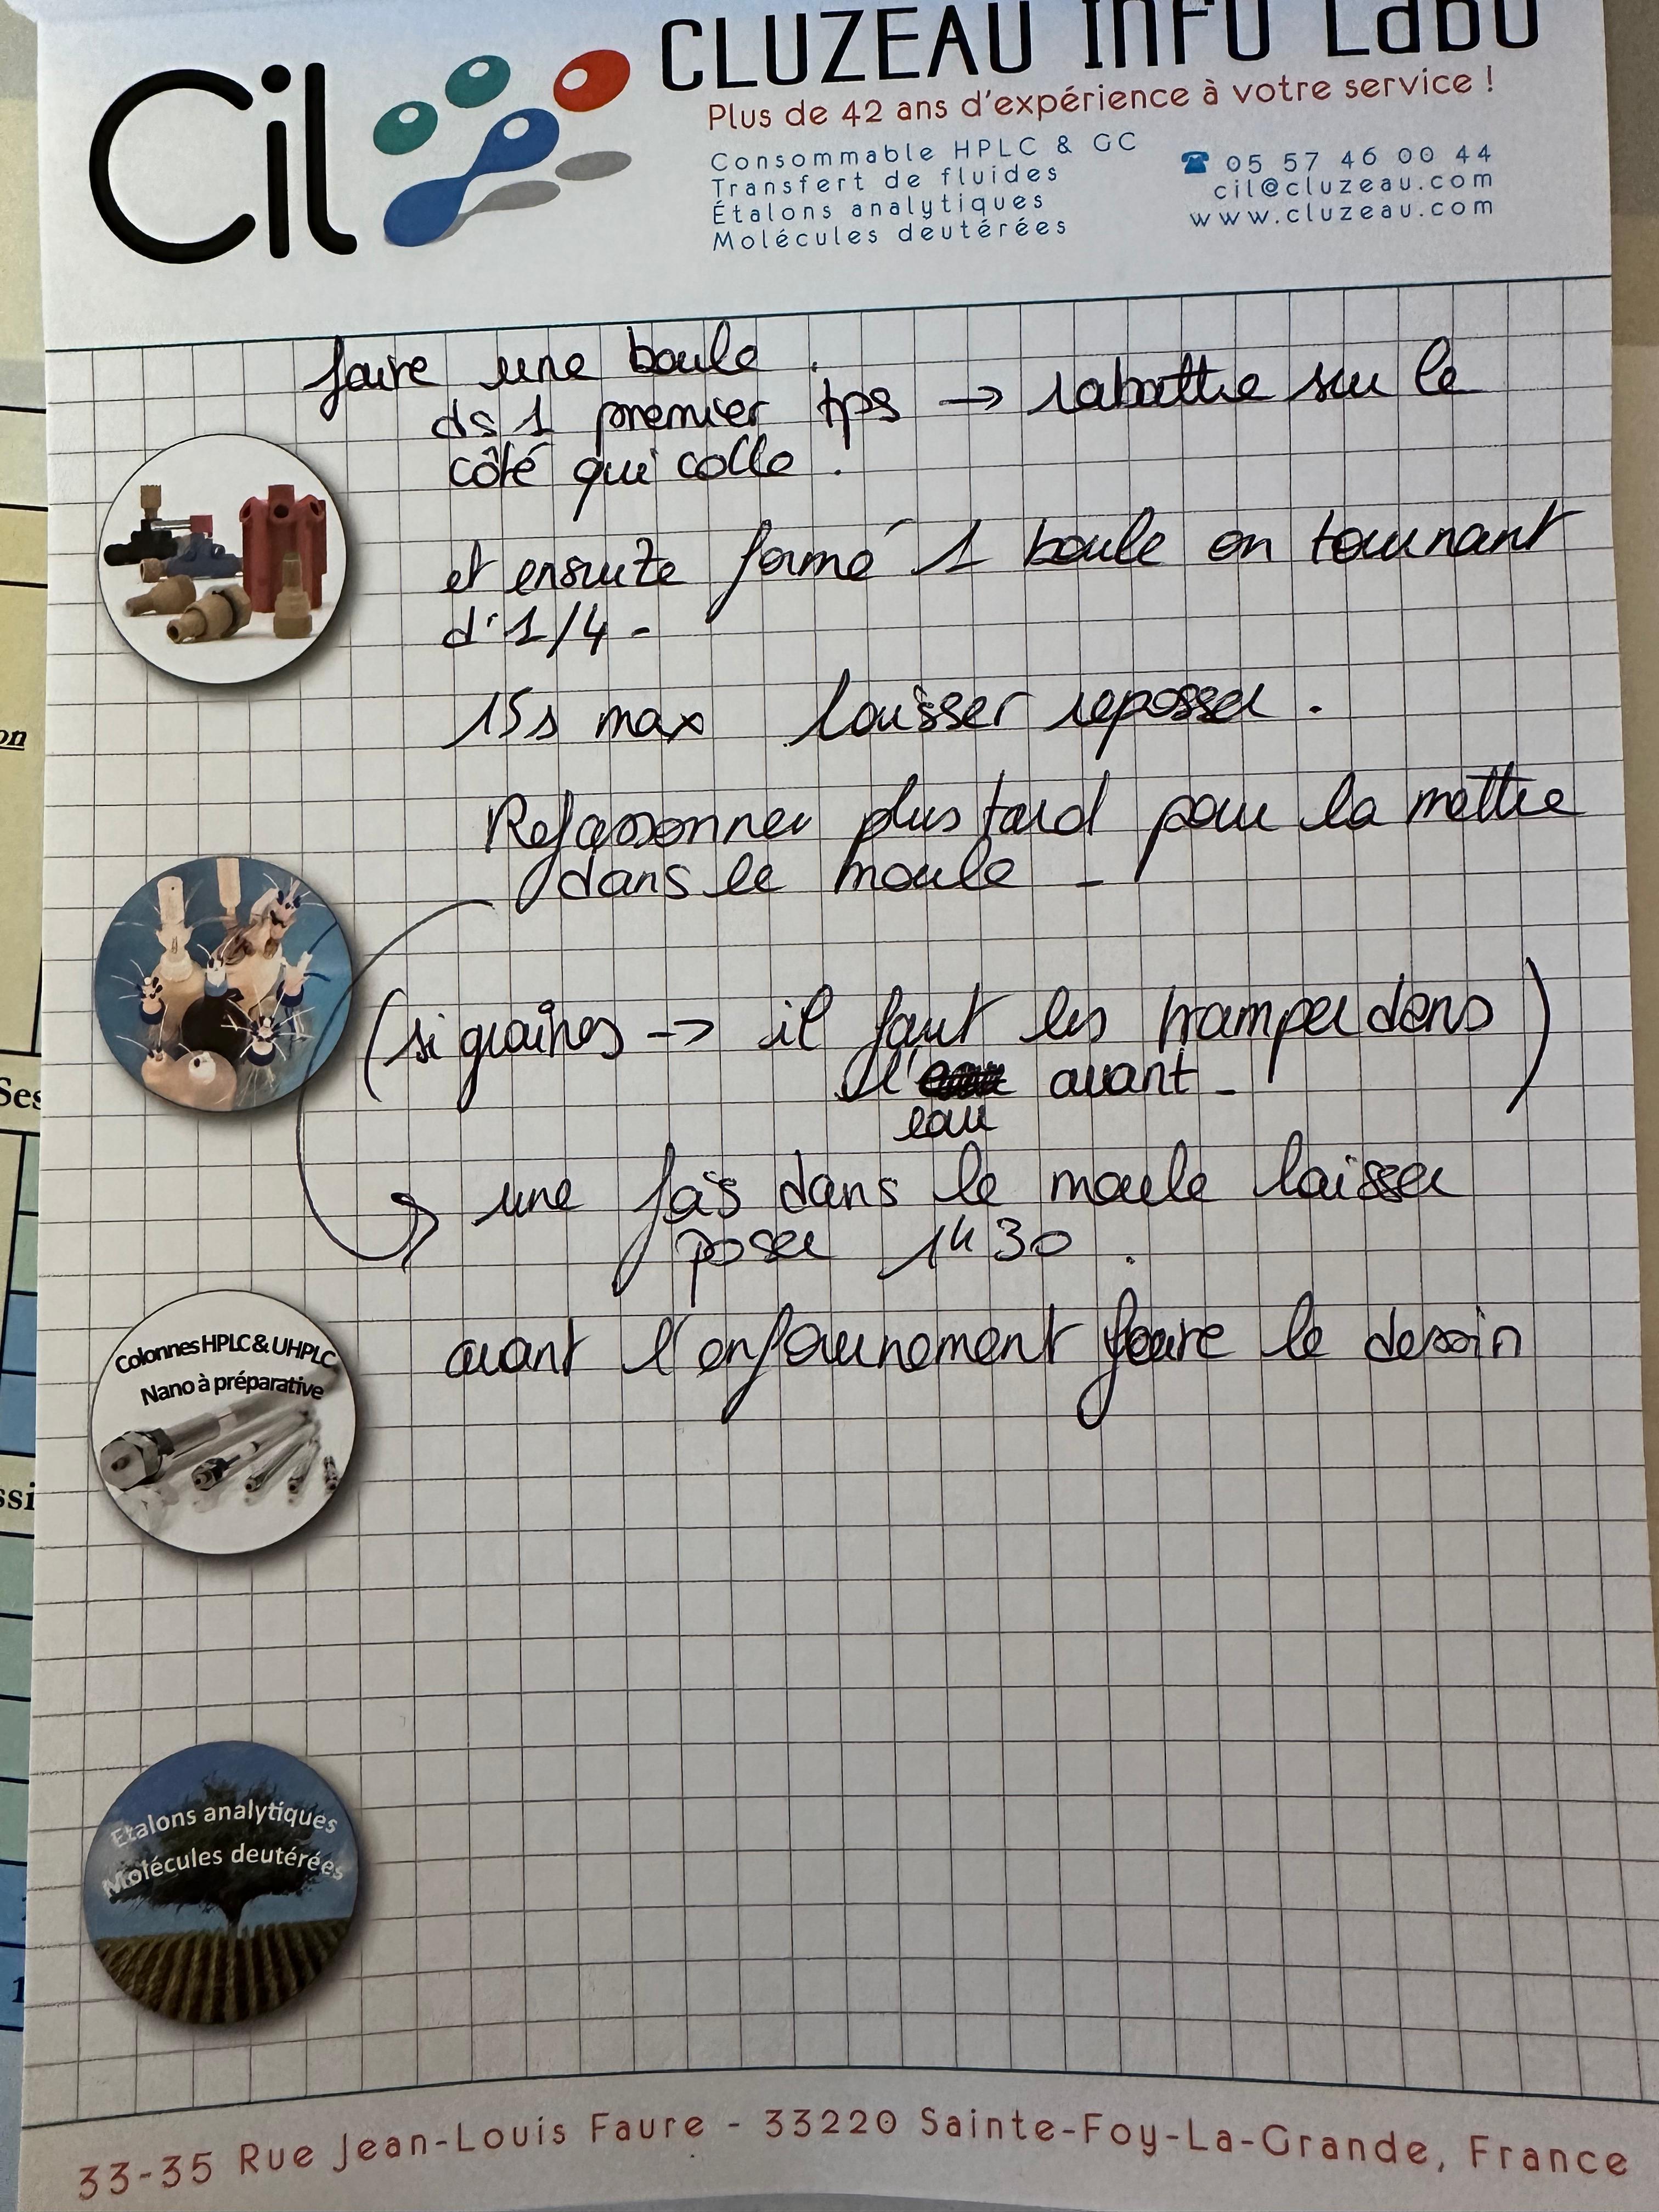 Cil
CLUZEAU INFO LABO
Plus de 42 ans d'expérience à votre service !
Consommable HPLC & GC
Transfert de fluides
Étalons analytiques
Molécules deutérées
05 57 46 00 44
cil@cluzeau.com
www.cluzeau.com
faire une boule.
ds 1 premier tps → rabattre sur le
côté qui colle.
et ensuite formé 1 boule en tournant
d'1/4 -
15s max laisser reposser.
Refassonner plus tard pour la mettre
dans le moule -
(si graines -> il faut les tramper dans
l' avant - )
eau
une fois dans le moule laisser
poser 1h30.
avant l'enfournement faire le dessin
Colonnes HPLC & UHPLC
Nano à préparative
Etalons analytiques
Molécules deutérées
33-35 Rue Jean-Louis Faure - 33220 Sainte-Foy-La-Grande, France
on
Ses
ssi
1